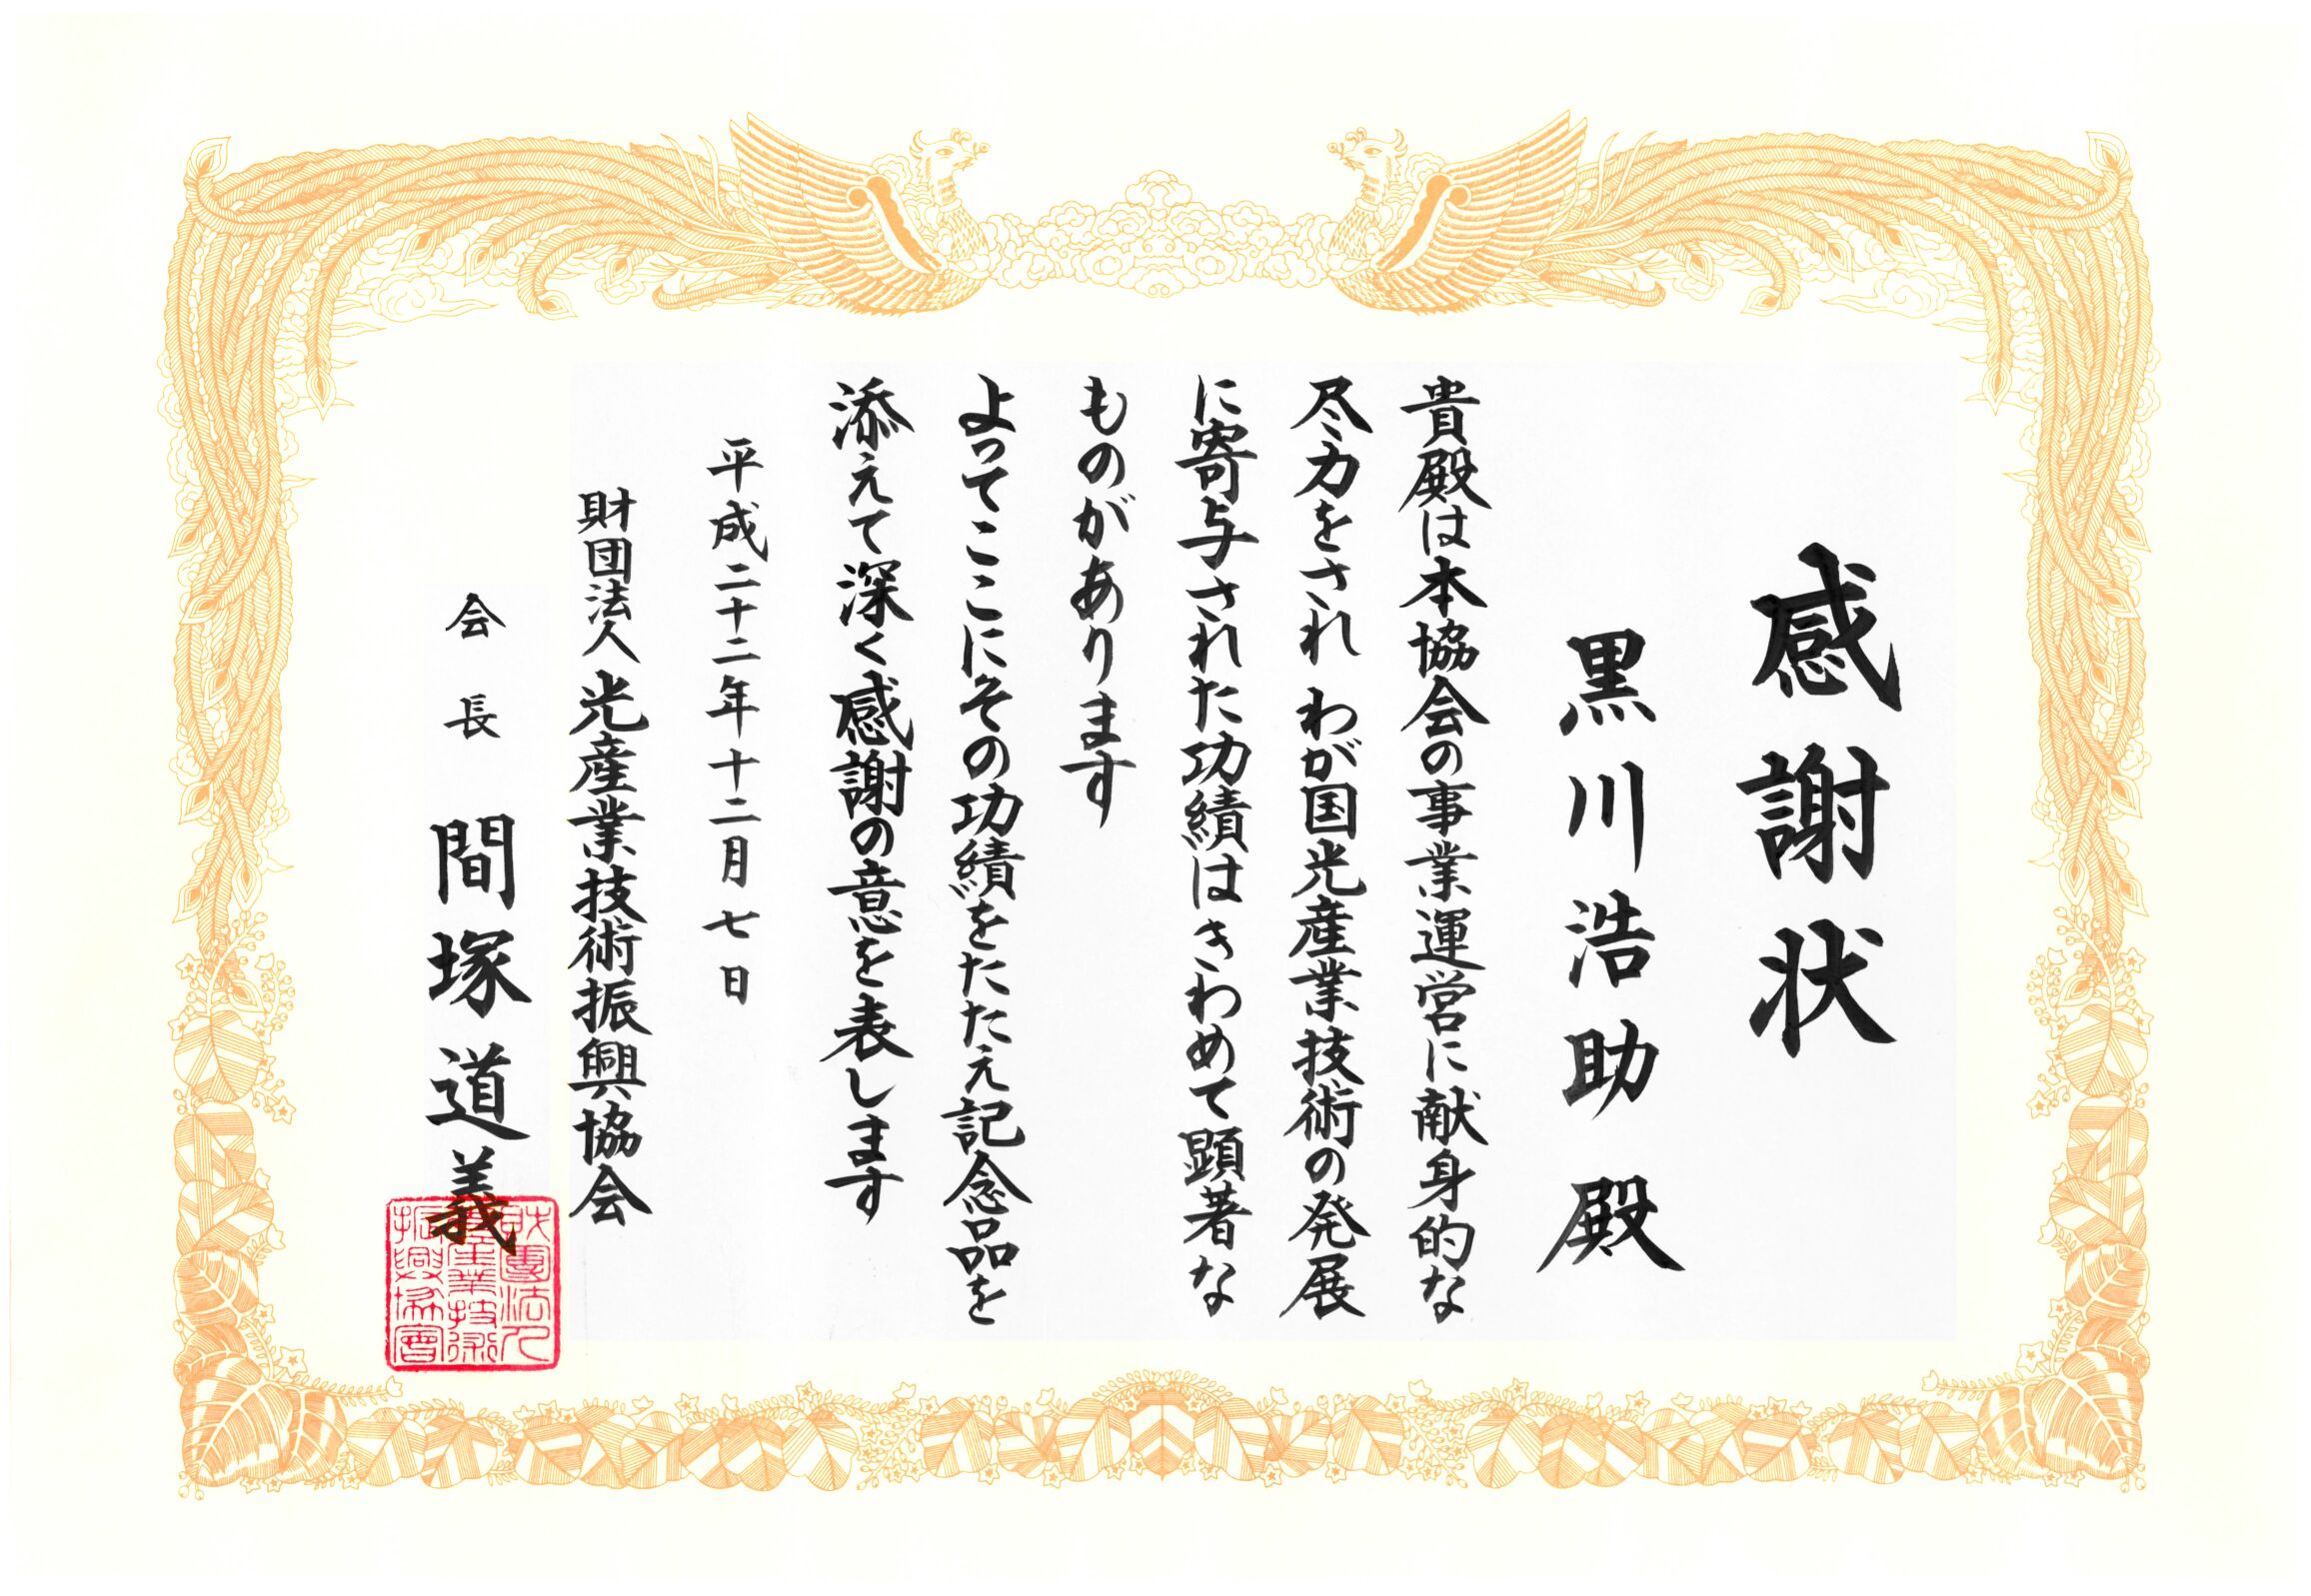 感謝状
黒川浩助殿
貴殿は本協会の事業運営に献身的な
尽力をされ わが国光産業技術の発展
に寄与された功績はきわめて顕著な
ものがあります
よってここにその功績をたたえ記念品を
添えて深く感謝の意を表します
平成二十二年十二月七日
財団法人光産業技術振興協会
会長 間塚道義
財團法人
光産業技術
振興協會